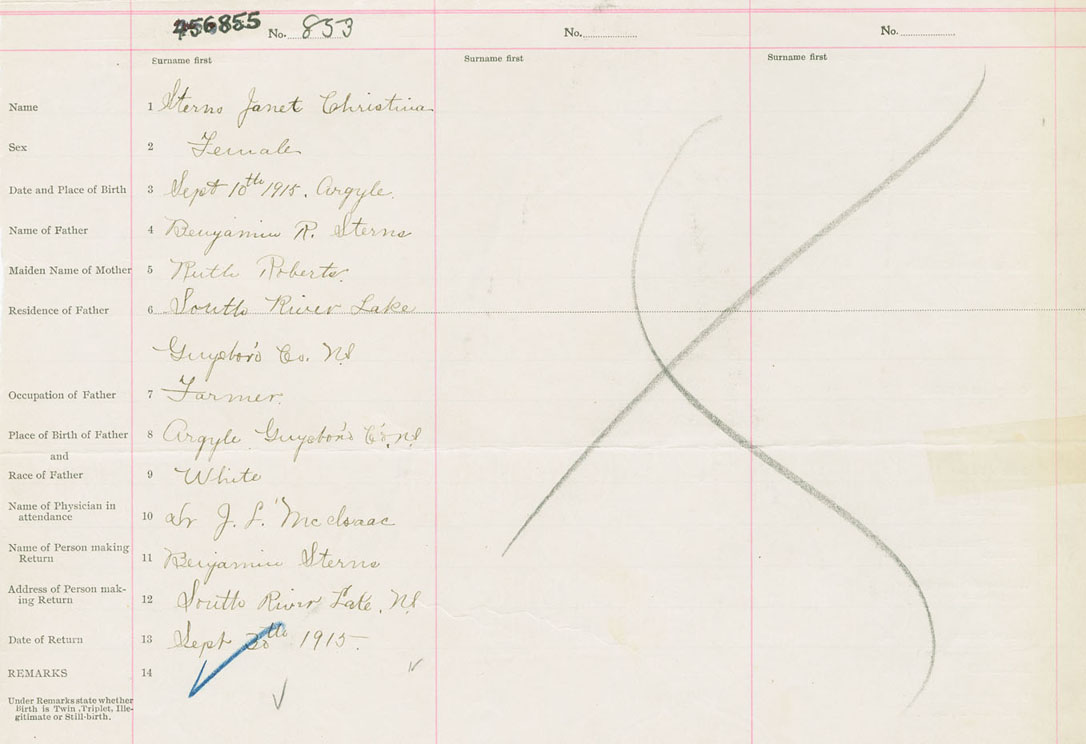 456855 No. 853 No. No.
Surname first Surname first Surname first
Name 1 Sterns Janet Christina
Sex 2 Female
Date and Place of Birth 3 Sept 10th 1915. Argyle.
Name of Father 4 Benjamin R. Sterns
Maiden Name of Mother 5 Ruth Roberts.
Residence of Father 6 South River Lake
Guysboro Co. NS
Occupation of Father 7 Farmer.
Place of Birth of Father 8 Argyle Guysboro Co. NS
and
Race of Father 9 White
Name of Physician in
attendance 10 Dr J. L. McIsaac
Name of Person making
Return 11 Benjamin Sterns
Address of Person mak-
ing Return 12 South River Lake, NS
Date of Return 13 Sept 30th 1915.
REMARKS 14
Under Remarks state whether
Birth is Twin, Triplet, Ille-
gitimate or Still-birth.